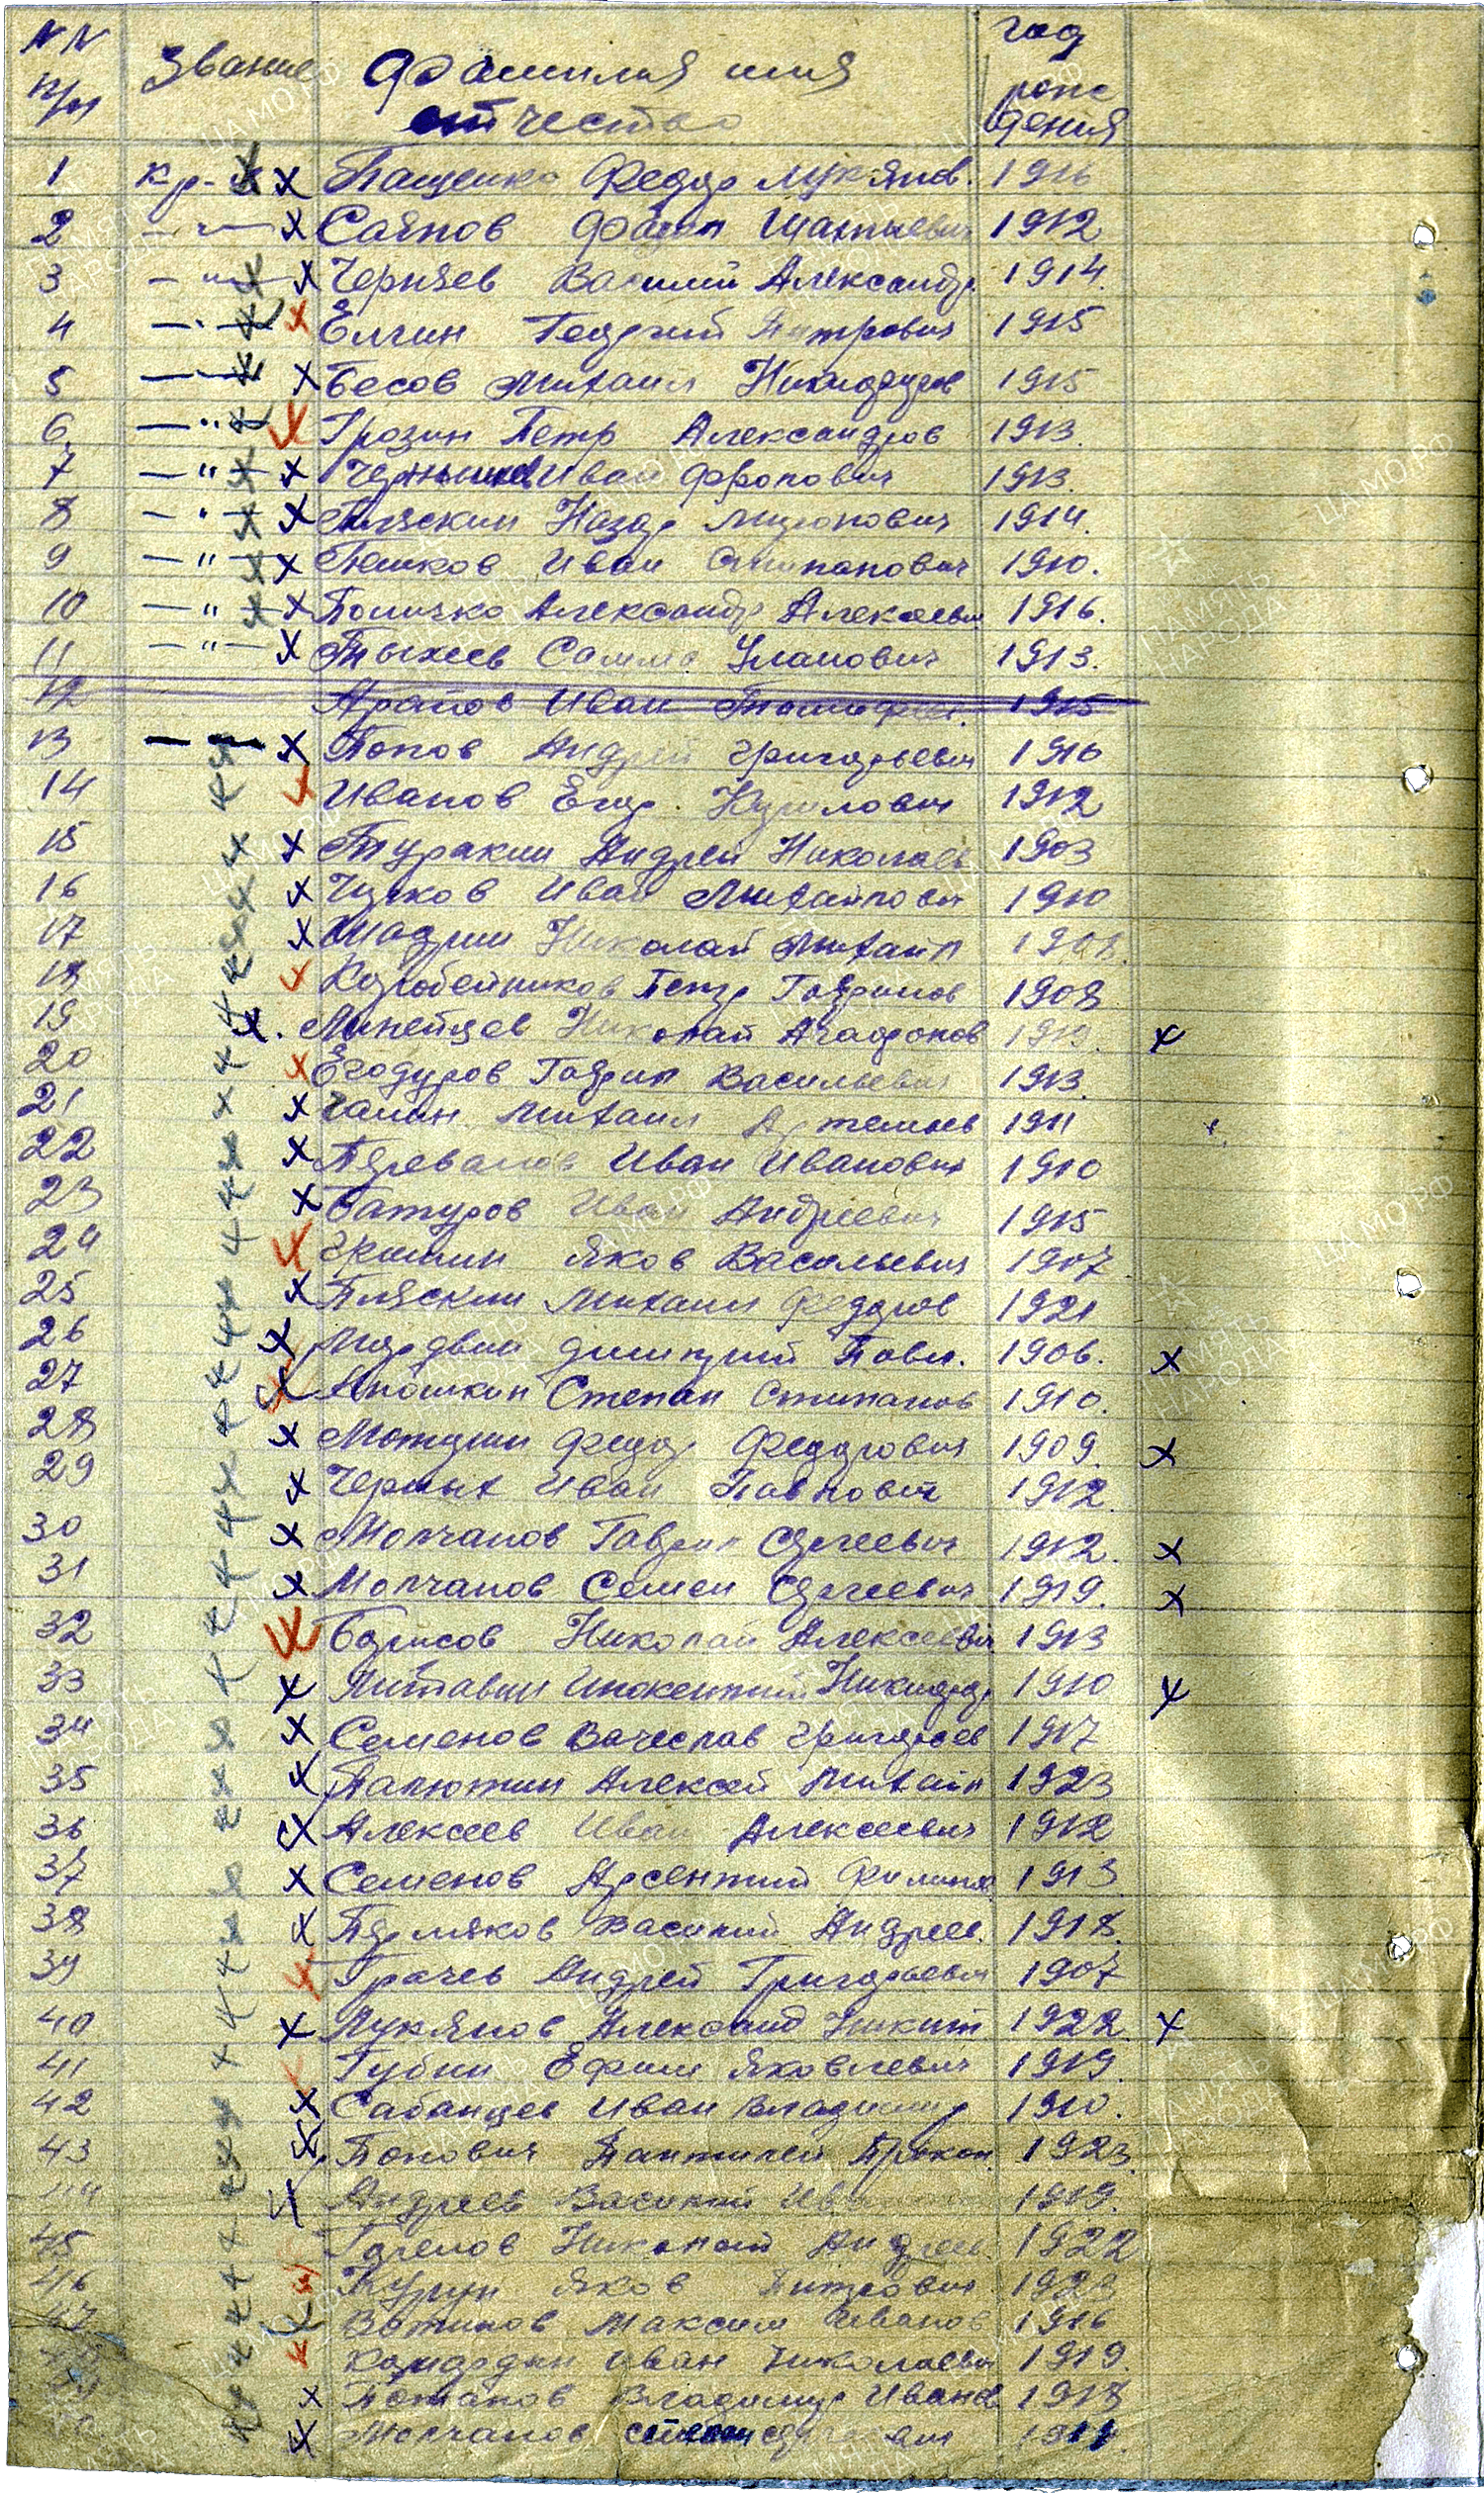 NN п/п Звание Фамилия имя отчество год рождения
1 кр-ц Пащенко Федор Лукянов. 1916
2 — " — Саянов 1912
3 — " — Черняев Василий Александр 1914.
4 — " — Елгин Георгий Петрович 1915
5 — " — Бесов Михаил Никифоров 1915
6. — " — Грозин Петр Александров 1913.
7 — " — Иван 1913.
8 — " — Пляскин Назар Миронович 1914.
9 — " — Пешков Иван Стипанович 1910.
10 — " — Поличко Александр Алексеевич 1916.
11 — " — Тыхеев Уланович 1913.
12 Арапов Иван 1915
13 — — Попов Андрей Григорьевич 1916
14 Иванов Егор Кирилович 1912
15 Туракин Андрей Николаев 1903
16 Чузков Иван Михайлович 1910
17 Николай Михайл
18 Коробейников Петр Гаврилов 1908
19 Линейцев Николай Агафонов
20 Егодуров Гаврил Васильевич 1913.
21 Михаил Артемьев 1911
22 Перевалов Иван Иванович 1910
23 Батуров Иван Андреевич 1915
24 Яков Васильевич 1907
25 Пляскин Михаил Федоров 1921
26 Мордвин Димитрий Павл. 1906.
27 Аношкин Степан Стипанов 1910.
28 Моторин Федор Федорович 1909.
29 Черных Иван Павлович 1912.
30 Молчанов Гаврил Сергеевич 1912.
31 Молчанов Семен Сергеевич 1919.
32 Борисов Николай Алексеевич 1913
33 Литавин Инокентий Никифор 1910
34 Семенов Вячеслав Григорьев 1917
35 Палютин Алексей Михайл 1923
36 Алексеев Иван Алексеевич 1912
37 Семенов Арсентий Филипов 1913
38 Пермяков Василий Андреев. 1918.
39 Грачев Андрей Григорьевич 1907
40 Лукянов Александ Никит 1922.
41 Губин Ефим Яковлевич 1919.
42 Сабанцев Иван Владимир 1910.
43 Попович Пантилей Прокоп. 1923.
44 Андреев Василий 1919.
45 Николай Андреев. 1922
46 Яков Питрович
47 Вотинов Максим Иванов 1916
Иван Николаевич 1919.
Потапов Владимир Иванов 1918
Молчанов Степан